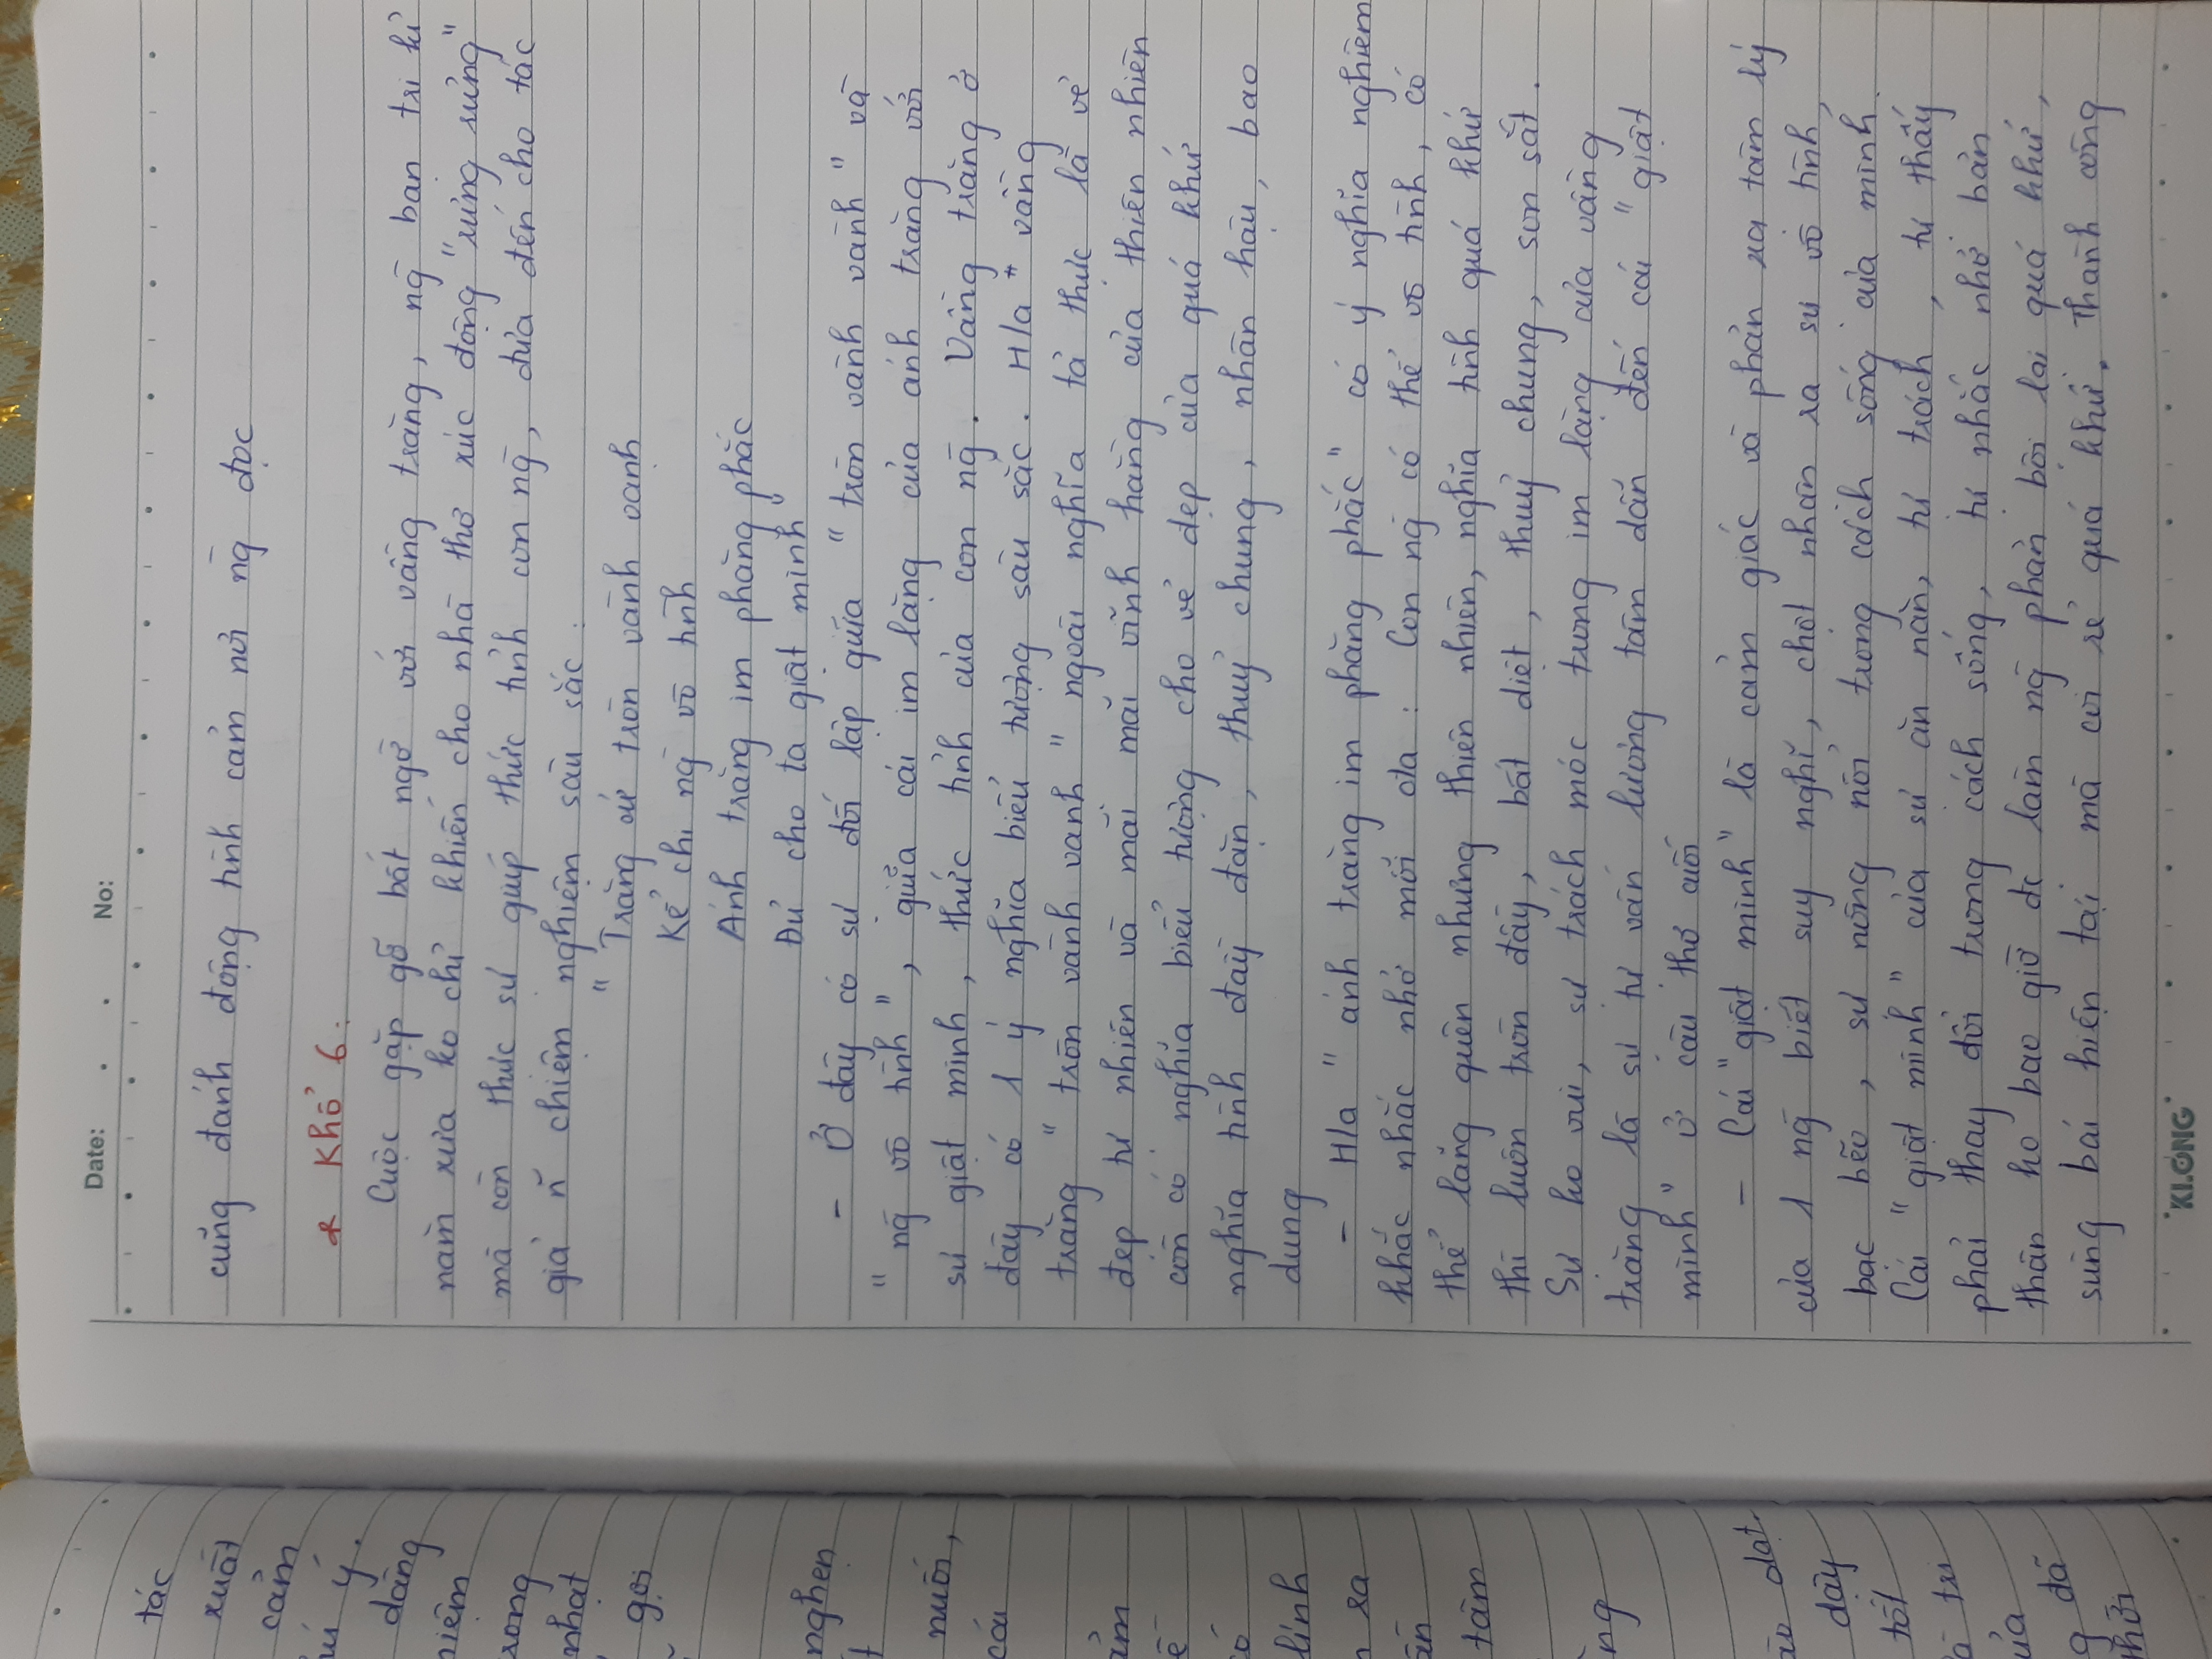 Date: . . No:
cũng đánh động tình cảm nơi ng̀ đọc
* Khổ 6:
Cuộc gặp gỡ bất ngờ với vầng trăng, ng̀ bạn tri kỉ
năm xưa ko chỉ khiến cho nhà thơ xúc động "rưng rưng"
mà còn thực sự giúp thức tỉnh con ng̀, đưa đến cho tác
giả n~ chiêm nghiệm sâu sắc:
"Trăng cứ tròn vành vạnh
Kể chi ng̀ vô tình
Ánh trăng im phăng phắc
Đủ cho ta giật mình"
- Ở đây có sự đối lập giữa "tròn vành vạnh" và
"ng̀ vô tình", giữa cái im lặng của ánh trăng với
sự giật mình, thức tỉnh của con ng̀. Vầng trăng ở
đây có 1 ý nghĩa biểu tượng sâu sắc. H/a * vầng
trăng "tròn vành vạnh" ngoài nghĩa tả thực là vẻ
đẹp tự nhiên và mãi mãi vĩnh hằng của thiên nhiên
còn có nghĩa biểu tượng cho vẻ đẹp của quá khứ
nghĩa tình đầy đặn, thuỷ chung, nhân hậu, bao
dung
- H/a "ánh trăng im phăng phắc" có ý nghĩa nghiêm
khắc nhắc nhở mỗi cta: Con ng̀ có thể vô tình, có
thể lãng quên nhưng thiên nhiên, nghĩa tình quá khứ
thì luôn tròn đầy, bất diệt, thuỷ chung, son sắt.
Sự ko vui, sự trách móc trong im lặng của vầng
trăng là sự tự vấn lương tâm dẫn đến cái "giật
mình" ở câu thơ cuối
- Cái "giật mình" là cảm giác và phản xạ tâm lý
của 1 ng̀ biết suy nghĩ, chợt nhận ra sự vô tình,
bạc bẽo, sự nông nổi trong cách sống của mình.
Cái "giật mình" của sự ăn năn, tự trách, tự thấy
phải thay đổi trong cách sống, tự nhắc nhở bản
thân ko bao giờ đc làm ng̀ phản bội lại quá khứ,
sùng bái hiện tại mà coi rẻ quá khứ. Thành công
KLONG
tác
xuất
cảm
ý.
dàng
nhạt
gọi
nghẹn
cái
ra
tâm
dạt
dậy
tốt
tri
đã